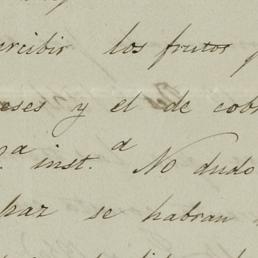 ercibir los frutos p
eses y el de cobr
ª inst.ª No dudo
haz se habran